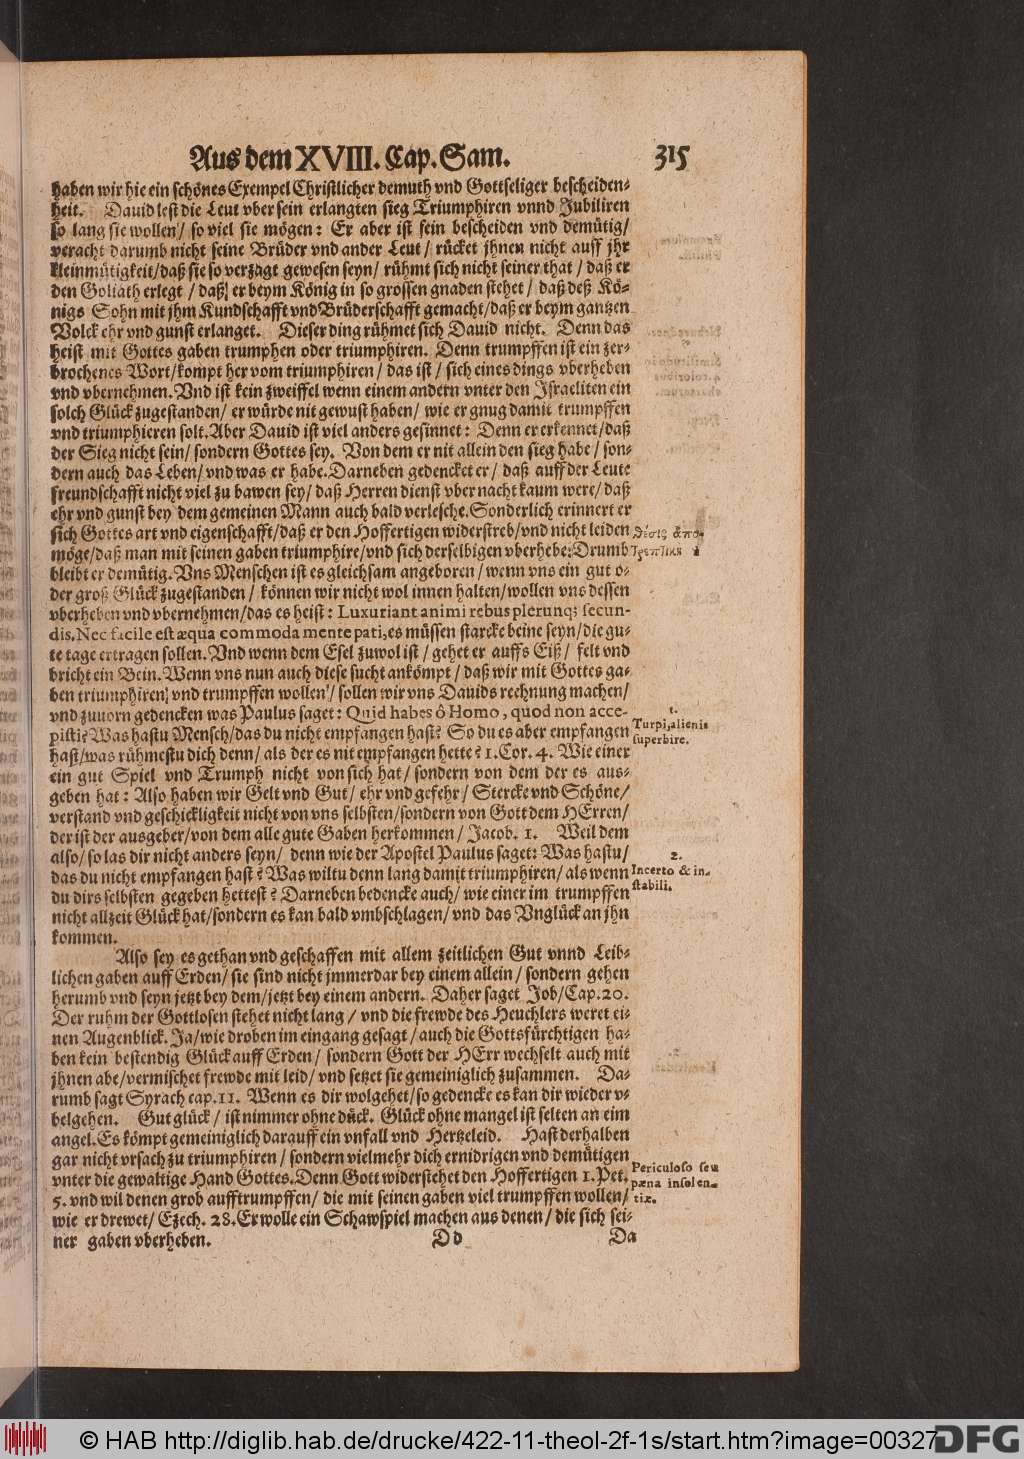 Aus dem XVIII. Cap. Sam. 315
haben wir hie ein schönes Exempel Christlicher demuth vnd Gottseliger bescheiden-
heit. Dauid lest die Leut vber sein erlangten sieg Triumphiren vnnd Jubiliren
so lang sie wollen/ so viel sie mögen: Er aber ist fein bescheiden vnd demütig/
veracht darumb nicht seine Brüder vnd ander Leut/ rücket jhnen nicht auff jhr
kleinmütigkeit/daß sie so verzagt gewesen seyn/ rühmt sich nicht seiner that/ daß er
den Goliath erlegt/ daß er beym König in so grossen gnaden stehet/ daß deß Kö-
nigs Sohn mit jhm Kundschafft vnd Brüderschafft gemacht/daß er beym gantzen
Volck ehr vnd gunst erlanget. Dieser ding rühmet sich Dauid nicht. Denn das
heist mit Gottes gaben trumphen oder triumphiren. Denn trumpffen ist ein zer-
brochenes Wort/kompt her vom triumphiren/ das ist/ sich eines dings vberheben
vnd vbernehmen. Vnd ist kein zweiffel wenn einem andern vnter den Israeliten ein
solch Glück zugestanden/ er würde nit gewust haben/ wie er gnug damit trumpffen
vnd triumphieren solt. Aber Dauid ist viel anders gesinnet: Denn er erkennet/daß
der Sieg nicht sein/ sondern Gottes sey. Von dem er nit allein den sieg habe/ son-
dern auch das Leben/ vnd was er habe. Darneben gedencket er/ daß auff der Leute
freundschafft nicht viel zu bawen sey/ daß Herren dienst vber nacht kaum were/ daß
ehr vnd gunst bey dem gemeinen Mann auch bald verlesche. Sonderlich erinnert er
sich Gottes art vnd eigenschafft/daß er den Hoffertigen widerstreb/vnd nicht leiden
möge/daß man mit seinen gaben triumphire/vnd sich derselbigen vberhebe: Drumb
bleibt er demütig. Vns Menschen ist es gleichsam angeboren/ wenn vns ein gut o-
der groß Glück zugestanden/ können wir nicht wol innen halten/wollen vns dessen
vberheben vnd vbernehmen/das es heist: Luxuriant animi rebus plerunq; secun-
dis. Nec facile est æqua commoda mente pati, es müssen starcke beine seyn/die gu-
te tage ertragen sollen. Vnd wenn dem Esel zuwol ist/ gehet er auffs Eiß/ felt vnd
bricht ein Bein. Wenn vns nun auch diese sucht ankömpt/ daß wir mit Gottes ga-
ben triumphiren vnd trumpffen wollen/ sollen wir vns Dauids rechnung machen/
vnd zuuorn gedencken was Paulus saget: Quid habes ô Homo, quod non acce-
pisti? Was hastu Mensch/das du nicht empfangen hast? So du es aber empfangen
hast/was rühmestu dich denn/ als der es nit empfangen hette? 1. Cor. 4. Wie einer
ein gut Spiel vnd Trumph nicht von sich hat/ sondern von dem der es aus-
geben hat: Also haben wir Gelt vnd Gut/ ehr vnd gefehr/ Stercke vnd Schöne/
verstand vnd geschickligkeit nicht von vns selbsten/sondern von Gott dem HErren/
der ist der ausgeber/von dem alle gute Gaben herkommen/ Jacob. 1. Weil dem
also/ so las dir nicht anders seyn/ denn wie der Apostel Paulus saget: Was hastu/
das du nicht empfangen hast? Was wiltu denn lang damit triumphiren/ als wenn
du dirs selbsten gegeben hettest? Darneben bedencke auch/ wie einer im trumpffen
nicht allzeit Glück hat/sondern es kan bald vmbschlagen/ vnd das Vnglück an jhn
kommen.
Also sey es gethan vnd geschaffen mit allem zeitlichen Gut vnnd Leib-
lichen gaben auff Erden/ sie sind nicht jmmerdar bey einem allein/ sondern gehen
herumb vnd seyn jetzt bey dem/jetzt bey einem andern. Daher saget Job/Cap. 20.
Der ruhm der Gottlosen stehet nicht lang/ vnd die frewde des Heuchlers weret ei-
nen Augenblick. Ja/wie droben im eingang gesagt/auch die Gottsfürchtigen ha-
ben kein bestendig Glück auff Erden/ sondern Gott der HErr wechselt auch mit
jhnen abe/vermischet frewde mit leid/ vnd setzet sie gemeiniglich zusammen. Da-
rumb sagt Syrach cap. 11. Wenn es dir wolgehet/so gedencke es kan dir wieder v-
belgehen. Gut glück/ ist nimmer ohne dück. Glück ohne mangel ist selten an eim
angel. Es kömpt gemeiniglich darauff ein vnfall vnd Hertzeleid. Hast derhalben
gar nicht vrsach zu triumphiren/ sondern vielmehr dich ernidrigen vnd demütigen
vnter die gewaltige Hand Gottes. Denn Gott widerstehet den Hoffertigen 1. Pet.
5. vnd wil denen grob aufftrumpffen/ die mit seinen gaben viel trumpffen wollen/
wie er drewet/ Ezech. 28. Er wolle ein Schawspiel machen aus denen/ die sich sei-
ner gaben vberheben.
Dd Da
1.
Turpi, alienis
superbire.
2.
Incerto & in-
stabili.
Periculoso seu
pœna insolen-
tiæ.
© HAB http://diglib.hab.de/drucke/422-11-theol-2f-1s/start.htm?image=00327
DFG